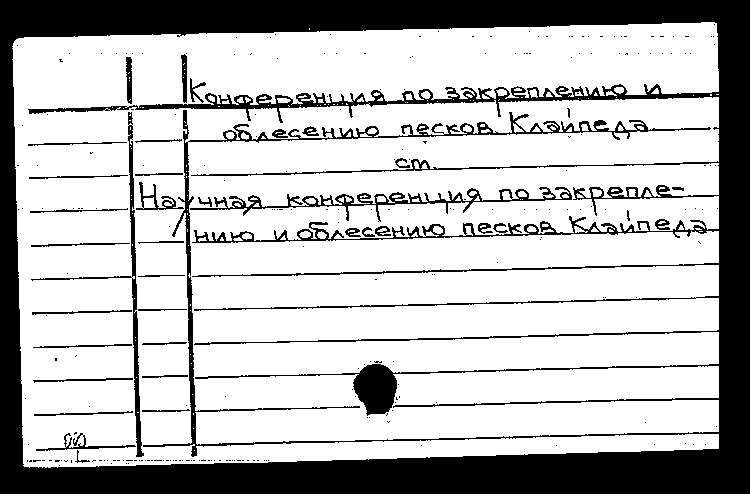 Конференция по закреплению и
облесению песков Клайпеда
см.
Научная конференция по закрепле-
нию и облесению песков Клайпеда